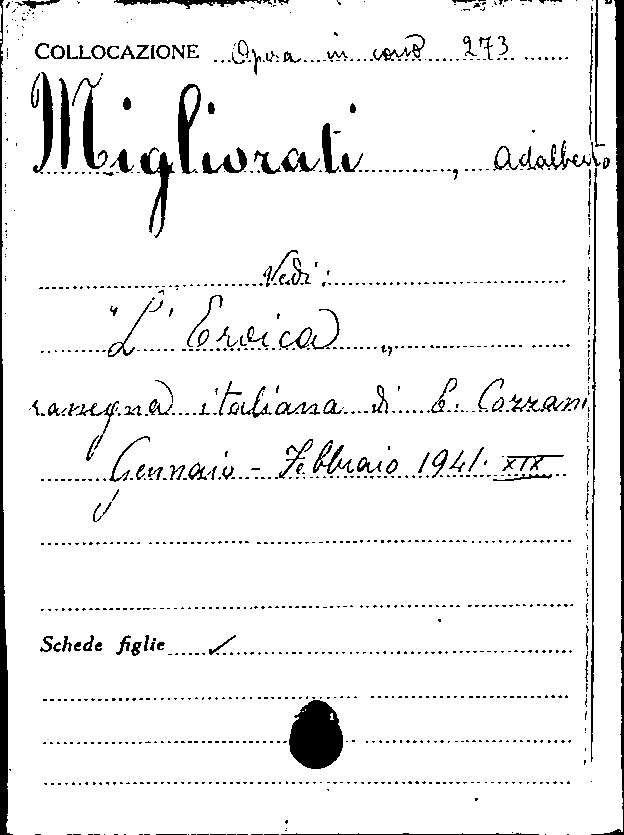 COLLOCAZIONE Opera in corso 273
Migliorati, Adalberto
Vedi:
"L'Eroica„
rassegna italiana di E. Cozzani
Gennaio - Febbraio 1941. XIX
Schede figlie ✓